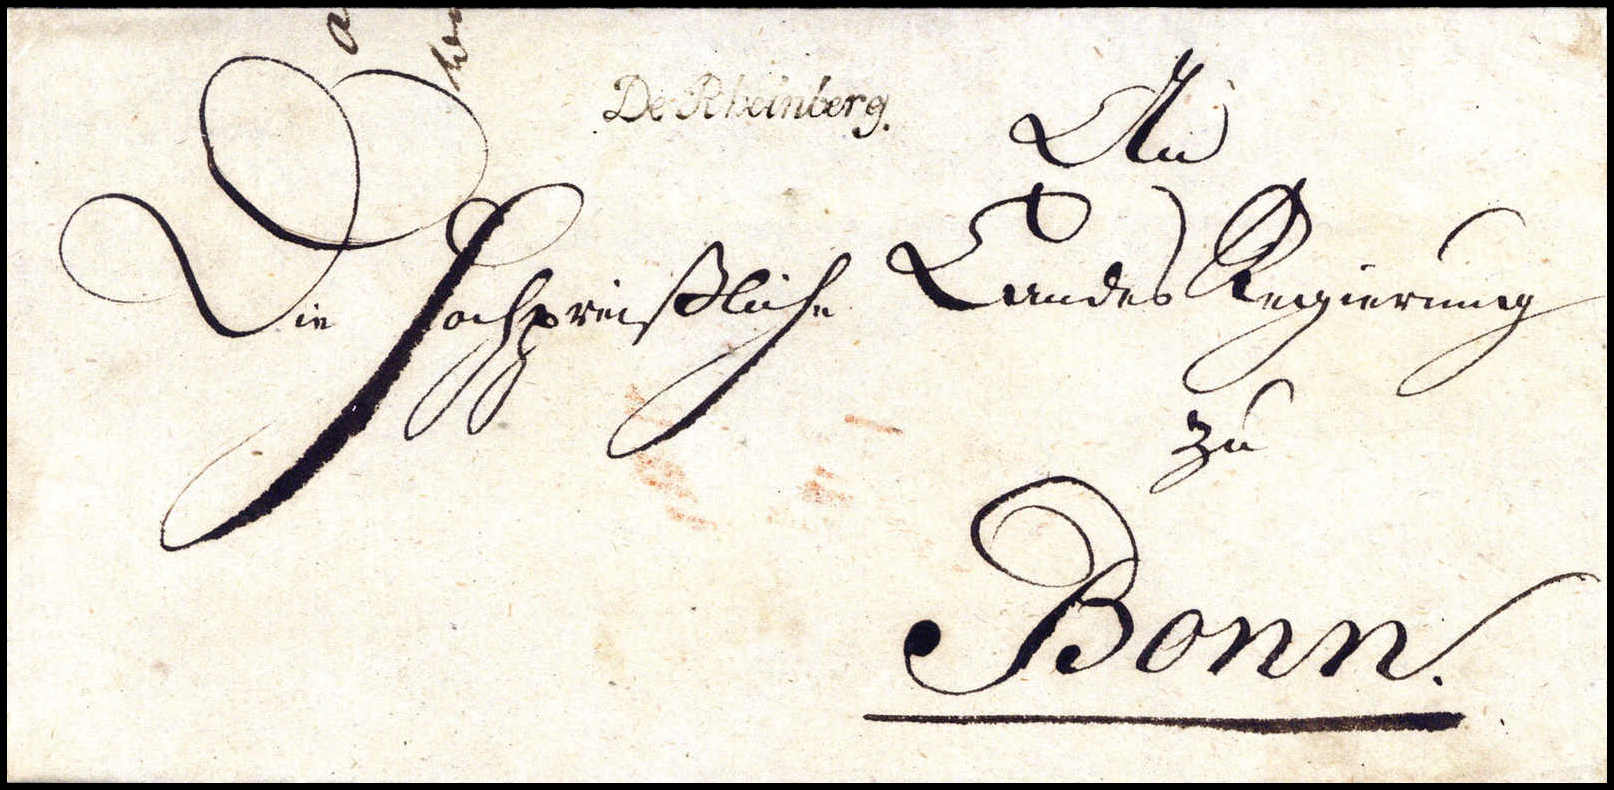 De Rheinberg.
An
Die Hochpreißliche Landes Regierung
zu
Bonn.